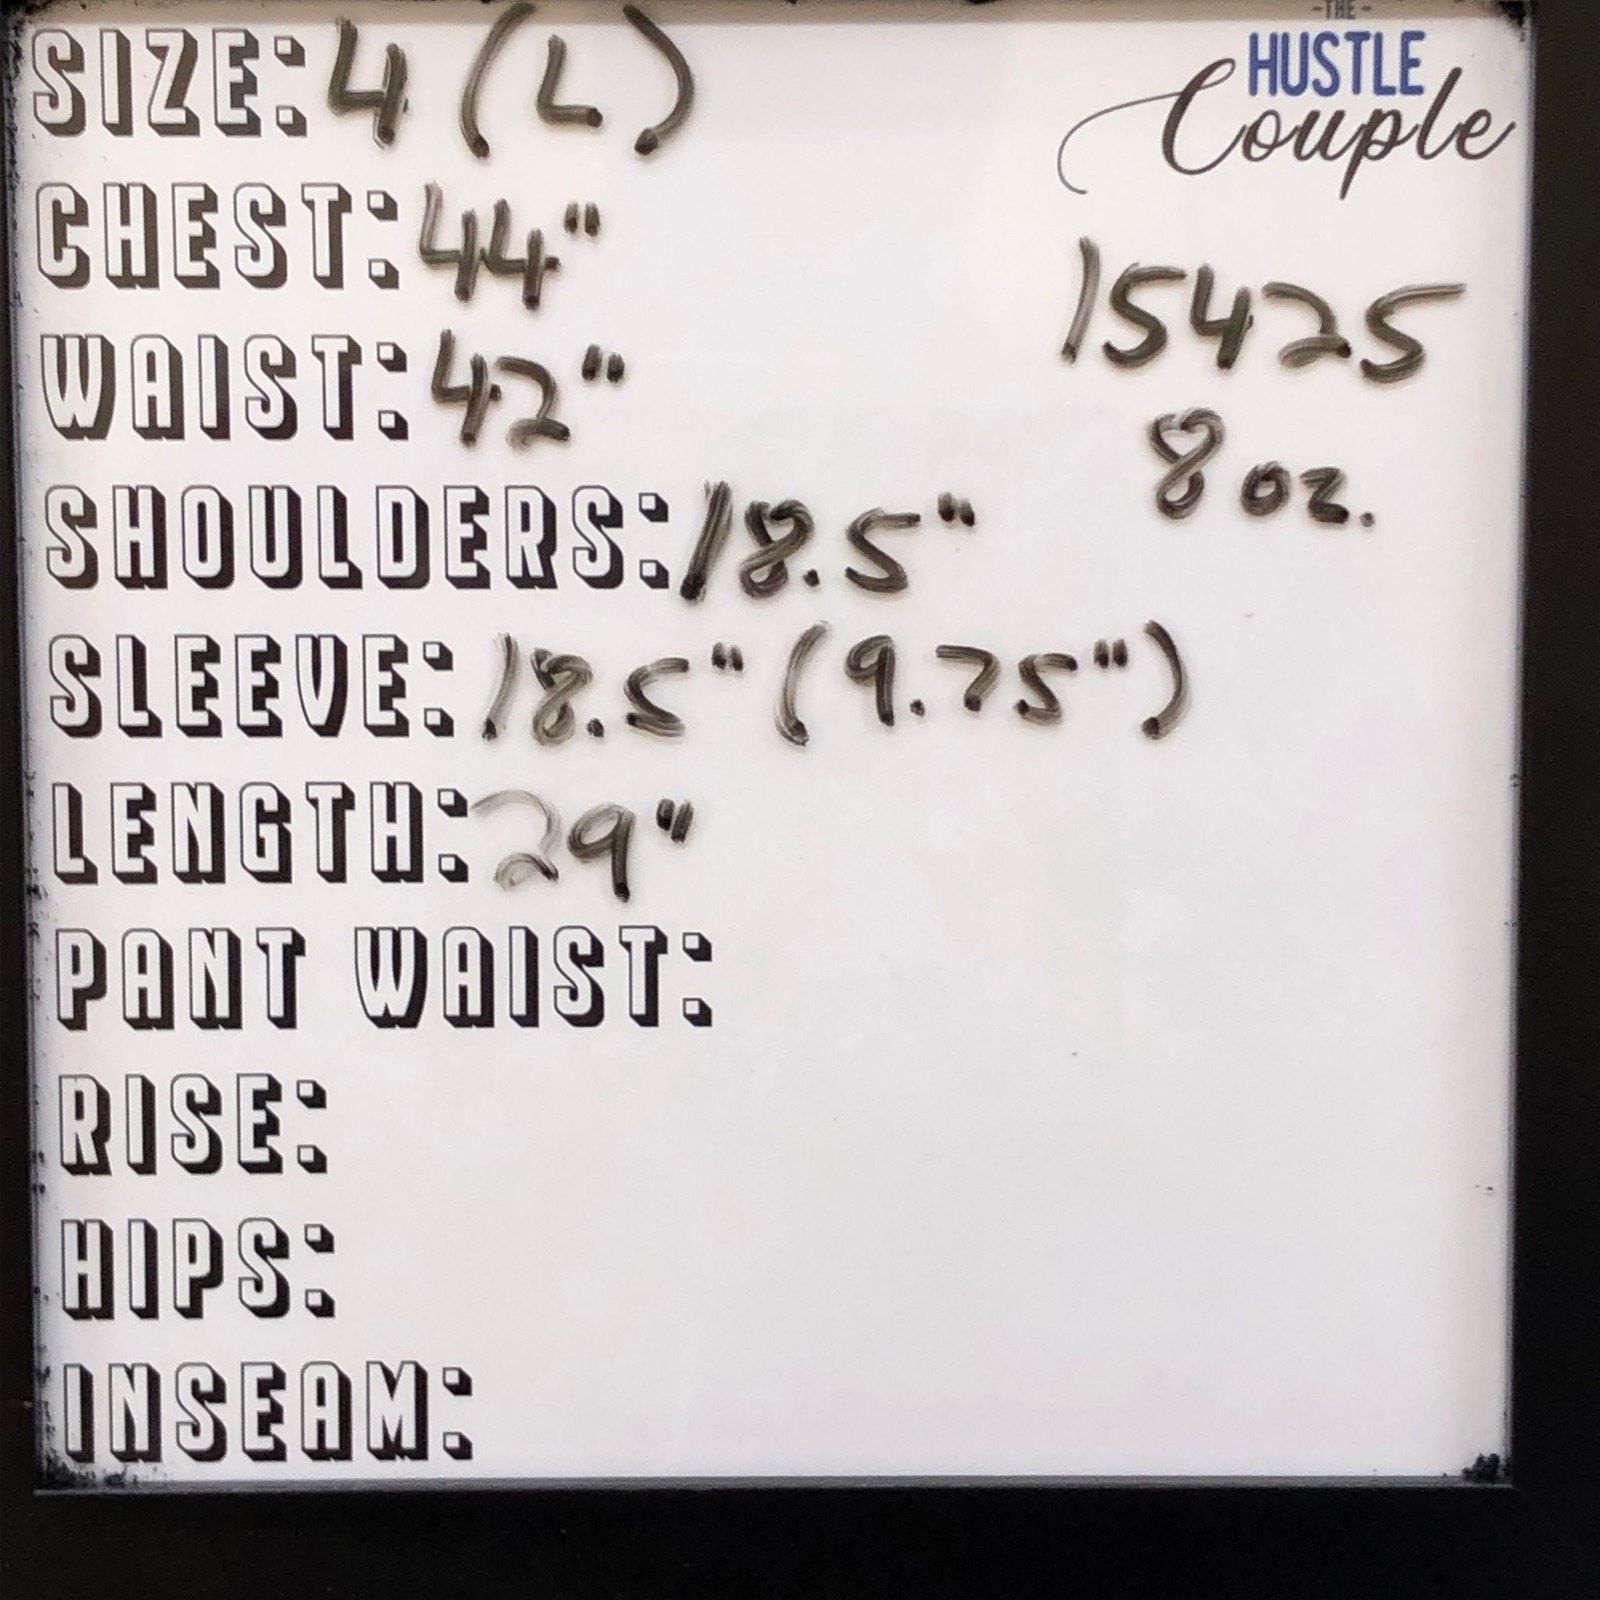 -THE-
HUSTLE
Couple
SIZE: 4 (L)
CHEST: 44"
15425
WAIST: 42"
8 oz.
SHOULDERS: 18.5"
SLEEVE: 18.5" (9.75")
LENGTH: 29"
PANT WAIST:
RISE:
HIPS:
INSEAM: